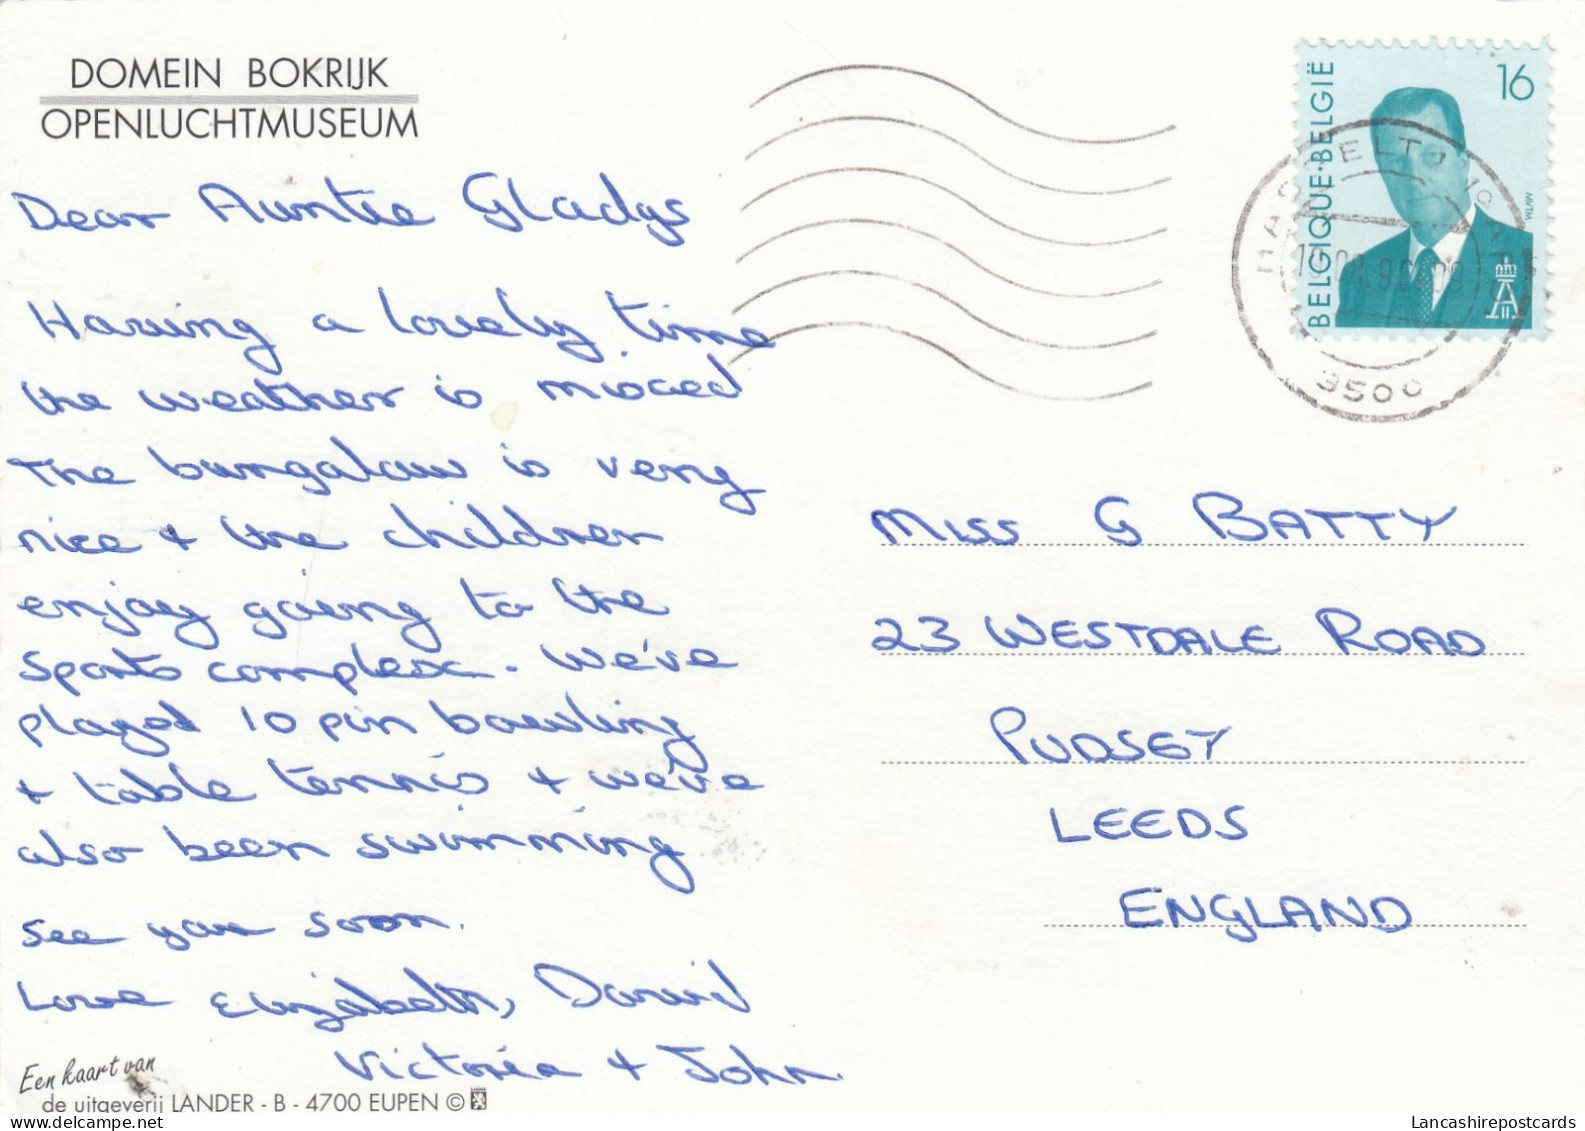 DOMEIN BOKRIJK
OPENLUCHTMUSEUM
Dear Auntie Gladys
Having a lovely time
the weather is mixed
The bungalow is very
nice + the children
enjoy going to the
sports complex. We've
played 10 pin bowling
+ table tennis + we've
also been swimming
see you soon.
Love Elizabeth, David
Victoria + John
Een kaart van
de uitgeverij LANDER - B - 4700 EUPEN ©
BELGIQUE·BELGIË
16
MVTM
3500
MISS G BATTY
23 WESTDALE ROAD
PUDSEY
LEEDS
ENGLAND
Lancashirepostcards